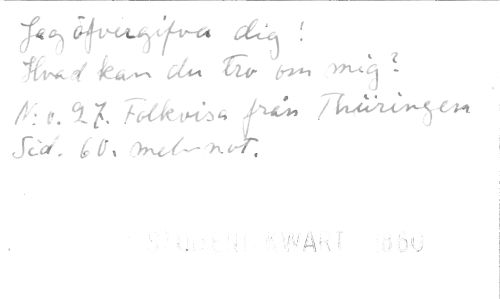 Jag öfvergifva dig!
Hvad kan du tro om mig?
N:o. 27. Folkvisa från Thüringen
Sid. 60. mel. not.
STUDENTKWART 1860